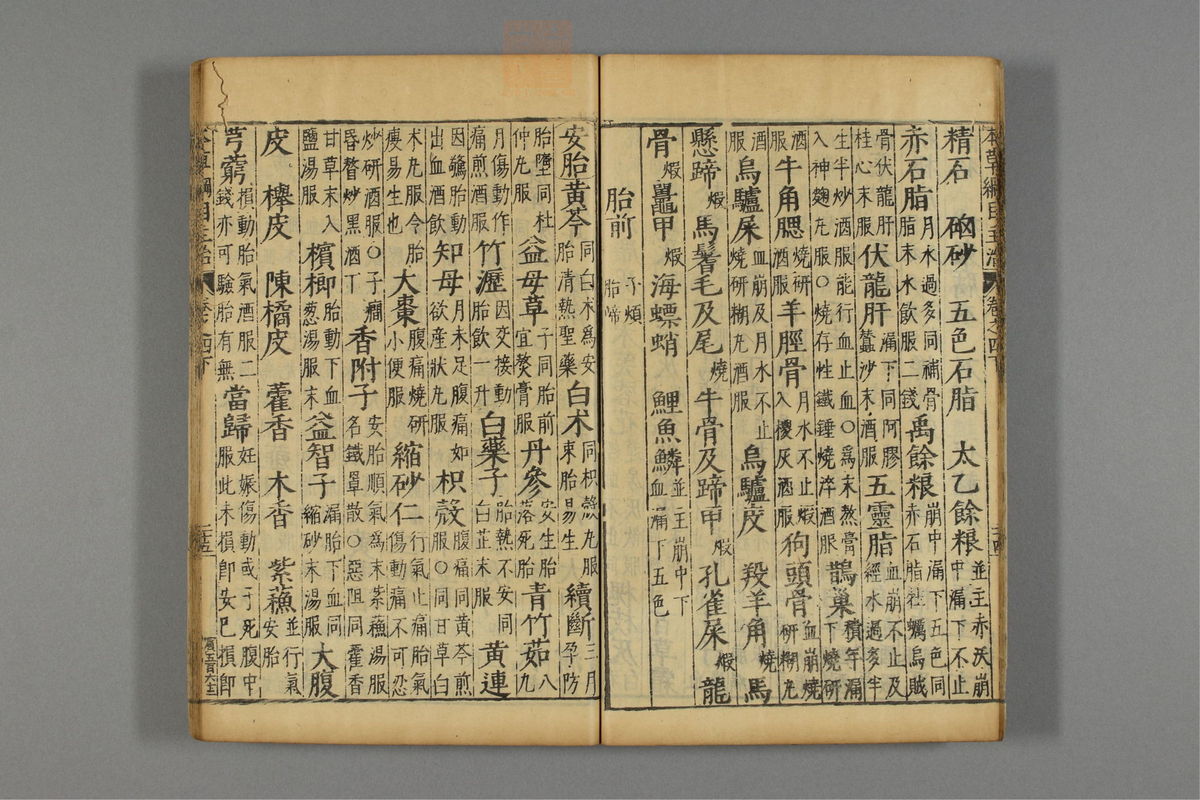 本草綱目主治 卷之四下
精石 硇砂 五色石脂 太乙餘粮並主赤沃崩中漏下不止
赤石脂月水過多同補骨脂末水飲服二錢禹餘粮崩中漏下五色同赤石脂牡蠣烏賊
骨伏龍肝桂心末服伏龍肝漏下同阿膠蠶沙末酒服五靈脂血崩不止及經水過多半
生半炒酒服能行血止血○爲末熬膏入神麴丸服○燒存性鐵錘燒淬酒服鵲巢積年漏下燒研
酒服牛角䚡燒研酒服羊脛骨月水不止煅入椶灰酒服狗頭骨血崩燒研糊丸
酒服烏驢屎血崩及月水不止燒研糊丸酒服烏驢皮 羖羊角燒馬
懸蹄煅馬鬐毛及尾燒牛骨及蹄甲煅孔雀屎煅龍
骨煅鼉甲煅海螵蛸 鯉魚鱗並主崩中下血漏下五色
胎前子煩胎啼
安胎黃芩同白朮爲安胎清熱聖藥白朮同枳殼丸服束胎易生續斷三月孕防
胎墮同杜仲丸服益母草子同胎前宜熬膏服丹參安生胎落死胎青竹茹八九
月傷動作痛煎酒服竹瀝因交接動胎飲一升白藥子胎熱不安同白芷末服黃連
因驚胎動出血酒飲知母月未足腹痛如欲産狀丸服枳殼腹痛同黃芩煎服○同甘草白
朮丸服令胎瘦易生也大棗腹痛燒研小便服縮砂仁行氣止痛胎氣傷動痛不可忍
炒研酒服○子癎昏瞀炒黑酒下香附子安胎順氣爲末紫蘓湯服名鐵罩散○惡阻同藿香
甘草末入鹽湯服檳榔胎動下血葱湯服末益智子漏胎下血同縮砂末湯服大腹
皮 櫸皮 陳橘皮 藿香 木香 紫蘓並行氣安胎
芎藭損動胎氣酒服二錢亦可驗胎有無當歸妊娠傷動或子死腹中服此未損卽安已損卽
本草綱目主治 卷之四下